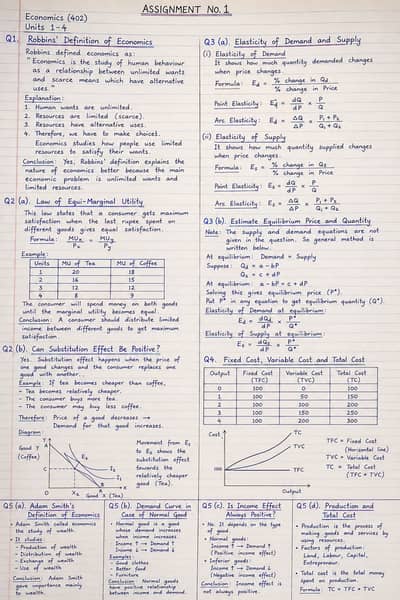 ASSIGNMENT No. 1
Economics (402)
Units 1-4
Q1. Robbins' Definition of Economics
Robbins defined economics as:
"Economics is the study of human behaviour
as a relationship between unlimited wants
and scarce means which have alternative
uses."
Explanation:
1. Human wants are unlimited.
2. Resources are limited (scarce).
3. Resources have alternative uses.
4. Therefore, we have to make choices.
Economics studies how people use limited
resources to satisfy their wants.
Conclusion: Yes, Robbins' definition explains the
nature of economics better because the main
economic problem is unlimited wants and
limited resources.
Q2 (a). Law of Equi-Marginal Utility
This law states that a consumer gets maximum
satisfaction when the last rupee spent on
different goods gives equal satisfaction.
Formula: MUx / Px = MUy / Py
Example:
Units MU of Tea MU of Coffee
1 20 18
2 16 15
3 12 12
4 8 9
The consumer will spend money on both goods
until the marginal utility becomes equal.
Conclusion: A consumer should distribute limited
income between different goods to get maximum
satisfaction.
Q2 (b). Can Substitution Effect Be Positive?
Yes. Substitution effect happens when the price of
one good changes and the consumer replaces one
good with another.
Example: If tea becomes cheaper than coffee,
- Tea becomes relatively cheaper.
- The consumer buys more tea.
- The consumer may buy less coffee.
Therefore: Price of a good decreases →
Demand for that good increases.
Diagram:
Good Y
(Coffee)
Y
C
O
X
Good X (Tea)
Movement from E1
to E2 shows the
substitution effect
towards the
relatively cheaper
good (Tea).
Q3 (a). Elasticity of Demand and Supply
(i) Elasticity of Demand
It shows how much quantity demanded changes
when price changes.
Formula: Ed = % change in Qd / % change in Price
Point Elasticity: Ed = dQ / dP × P / Q
Arc Elasticity: Ed = ΔQ / ΔP × P1 + P2 / Q1 + Q2
(ii) Elasticity of Supply
It shows how much quantity supplied changes
when price changes.
Formula: Es = % change in Qs / % change in Price
Point Elasticity: Es = dQ / dP × P / Q
Arc Elasticity: Es = ΔQ / ΔP × P1 + P2 / Q1 + Q2
Q3 (b). Estimate Equilibrium Price and Quantity
Note: The supply and demand equations are not
given in the question. So general method is
written below.
At equilibrium: Demand = Supply
Suppose: Qd = a - bP
Qs = c + dP
At equilibrium: a - bP = c + dP
Solving this gives equilibrium price (P*).
Put P* in any equation to get equilibrium quantity (Q*).
Elasticity of Demand at equilibrium:
Ed = dQd / dP × P* / Q*
Elasticity of Supply at equilibrium:
Es = dQs / dP × P* / Q*
Q4. Fixed Cost, Variable Cost and Total Cost
Output Fixed Cost (TFC) Variable Cost (TVC) Total Cost (TC)
0 100 0 100
1 100 50 150
2 100 100 200
3 100 150 250
4 100 200 300
Cost
TC
TVC
100
TFC
Output
TFC = Fixed Cost
(Horizontal line)
TVC = Variable Cost
TC = Total Cost
(TFC + TVC)
Q5 (a). Adam Smith's
Definition of Economics
• Adam Smith called economics
the study of wealth.
• It studies:
- Production of wealth
- Distribution of wealth
- Exchange of wealth
- Use of wealth
Conclusion: Adam Smith
gave importance mainly
to wealth.
Q5 (b). Demand Curve in
Case of Normal Good
• Normal good is a good
whose demand increases
when income increases.
Income ↑ → Demand ↑
Income ↓ → Demand ↓
Examples:
- Good clothes
- Better food
- Furniture
Conclusion: Normal goods
have positive relationship
between income and demand.
Q5 (c). Is Income Effect
Always Positive?
• No. It depends on the type
of good.
• Normal goods:
Income ↑ → Demand ↑
(Positive income effect)
• Inferior goods:
Income ↑ → Demand ↓
(Negative income effect)
Conclusion: Income effect is
not always positive.
Q5 (d). Production and
Total Cost
• Production is the process of
making goods and services by
using resources.
• Factors of production:
Land, Labour, Capital,
Entrepreneur.
• Total cost is the total money
spent on production.
Formula: TC = TFC + TVC